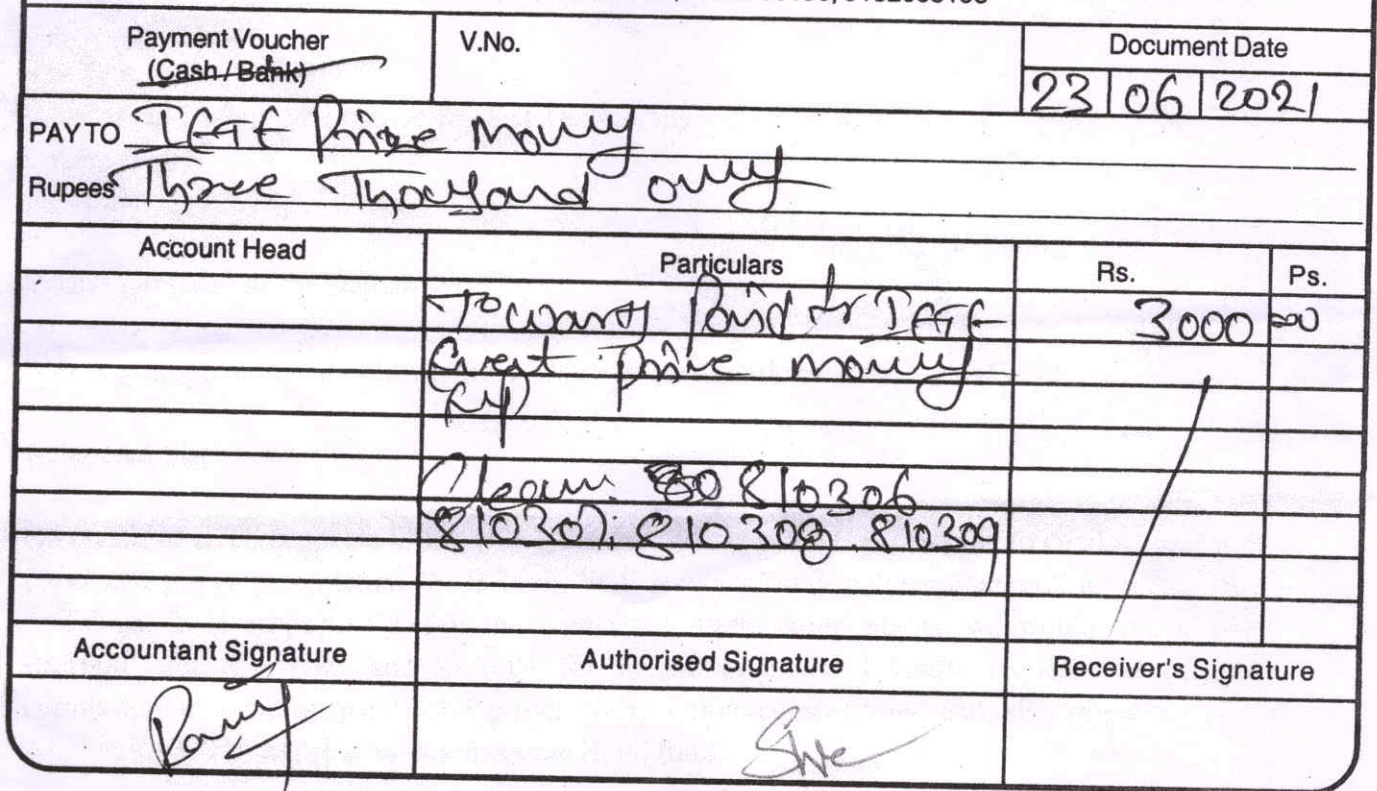 Payment Voucher
(Cash / Bank)
V.No.
Document Date
23 06 2021
PAY TO IETE Prize Money
Rupees Three Thousand only
Account Head Particulars Rs. Ps.
Towards Paid to IETE 3000 =00
Event prize money
810307. 810308. 810309
Accountant Signature Authorised Signature Receiver's Signature